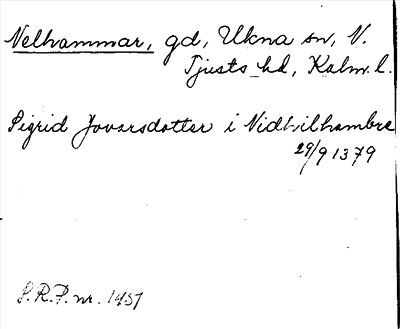 Nelhammar, gd, Ukna sn, N.
Tjusts hd, Kalm. l.
Sigrid Jovarsdotter i Nidhilhambre
29/9 1379
S.R.P. nr. 1457